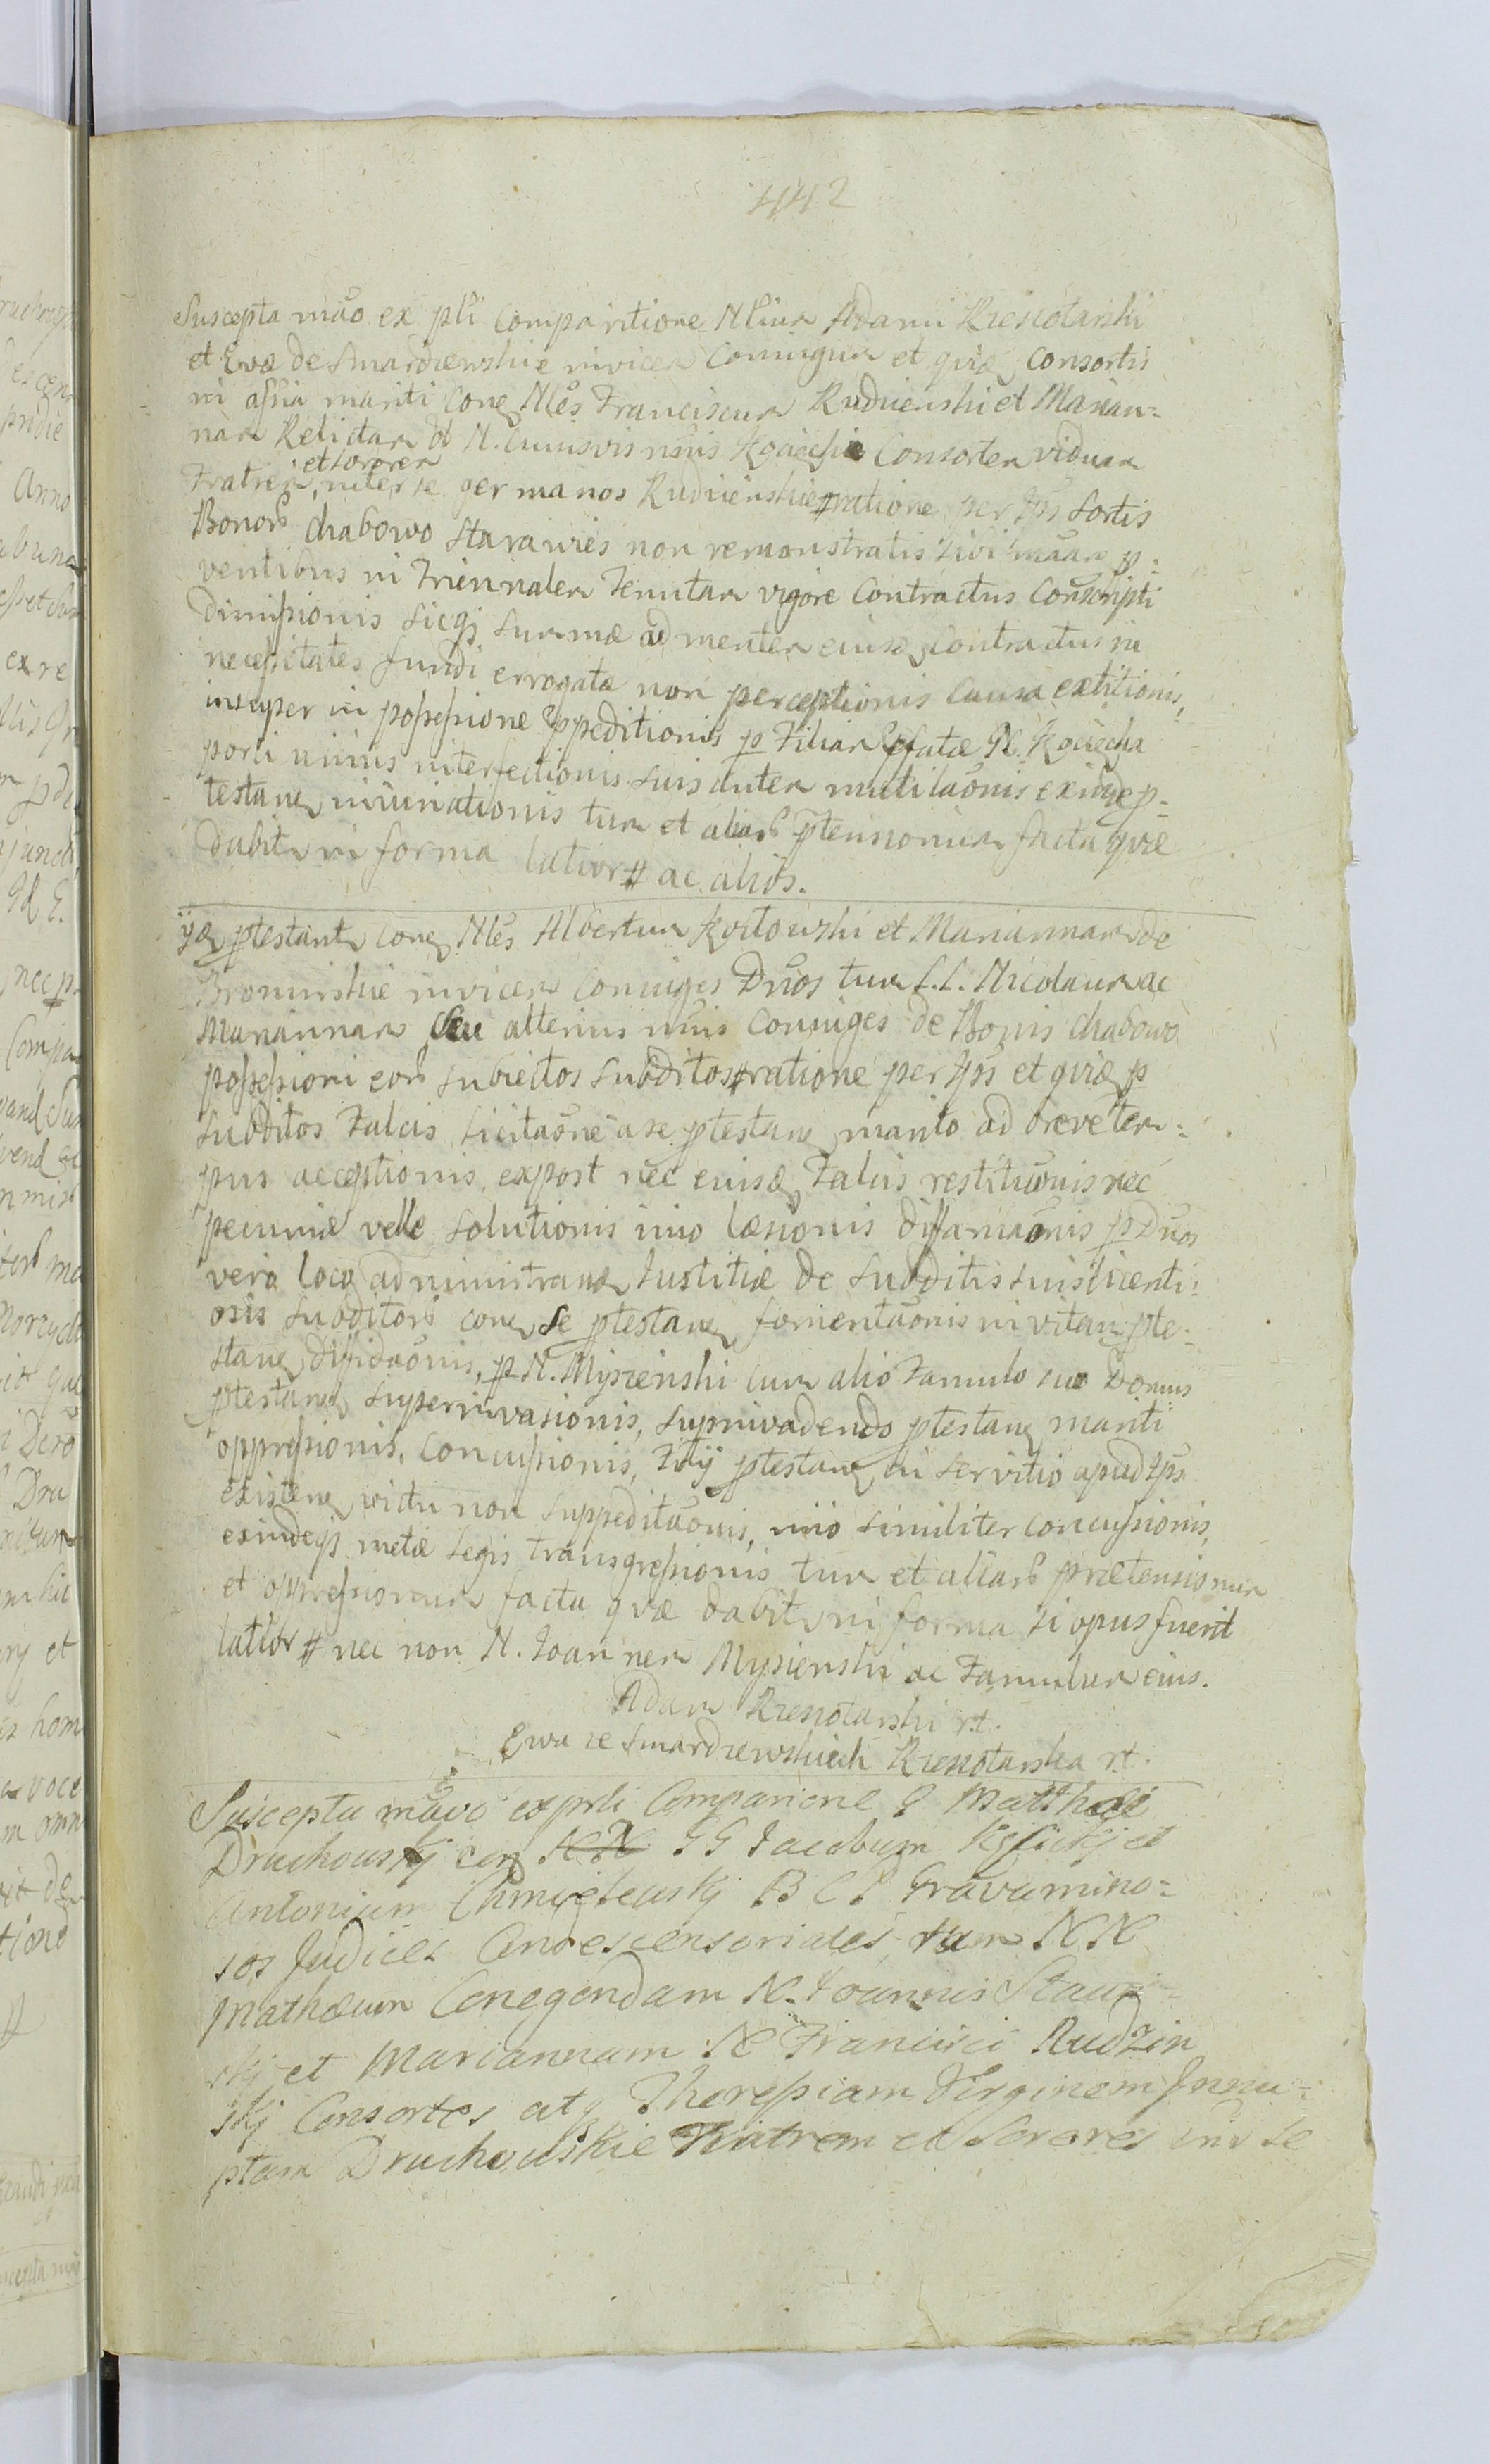 442
Suscepta mãõ ex pli Comparitione Nlium Adami Rzeszotarski
et Evæ de Smardzewskie invicem Coniugum et quidē consortis
in assia mariti cone Nles Franciscum Rudzienski et Marian=
nam Relictam N. cuiusvis nuis Kociecki Consortem viduam
Fratrem et sororem inter se germanos Rudzienskie ratione per Ips sortis
Bonorũ chabowo Starawies non remonstratis sibi p=
ventibus in Triennalem Tenutam vigore Contractus Conscripti
dimissionis sicqȝ summæ ad mentem eiusd Contractus in
necessitates fundi errogatæ non perceptionis causa extitionis,
insuper in possessione Exp̃peditionis p Filiam p̃fatæ N. Kociecka
porci unius interfectionis suis autem mutilaonis exinde p=
testan iniuriationis tum et aliarũ p̃tensionum facta quæ
dabitur in forma latior # ac alios.
ijdē p̃testantr cone Nles Albertum Kozlowski et Mariannam de
Brominskie invicem coniuges Dnos tum L.L. Nicolaum ac
Mariannam seu alterius nuis coniuges de Bonis chabowo
possessioni eorũ subiectos subditos # ratione per Ips et quidē p
subditos Falcis licitaone a se p̃testan marito ad breve tem=
pus acceptionis, expost nec eiusd Falcis restituonis nec
pecuniæ velle solutionis imo læsionis diffamaonis p Dnos
vero loco administrand Iustitiæ de subditis suis licenti=
osis subditorũ cone se p̃testan fomentaonis in vitam p̃te=
stan diffidaonis, p N. Myszenski cum alio Famulo suo Domus
p̃testan superinvasionis, supinvadendo p̃testan mariti
oppressionis, concussionis, Filij p̃testan in servitio apud Ips
existen victu non suppeditaonis, imo similiter concussionis,
exindeqȝ metæ Legis transgressionis tum et aliarũ prætensionum
et oppressionum facta quæ dabitur in forma si opus fuerit
latior # nec non N. Joannem Myszenski ac Famulum eius.
Adam Rzeszotarski rt.
Ewa ze Smardzewskich Rzeszotarska rt.
Suscepta mãvo exprli Comparione G Matthæi
Druchowskij con GG Jacobum Kęsickj et
Antonium Chmielewskj B C P Gravamino=
sos Judices Condescensoriales tum NN
Mathæum Conegondam N. Joannis Staw
skj et Mariannam N Francisci Rudzin
skj Consortes atq Theressiam Virginem Innu=
ptam Druchowskie Fratrem et Sorores inr se